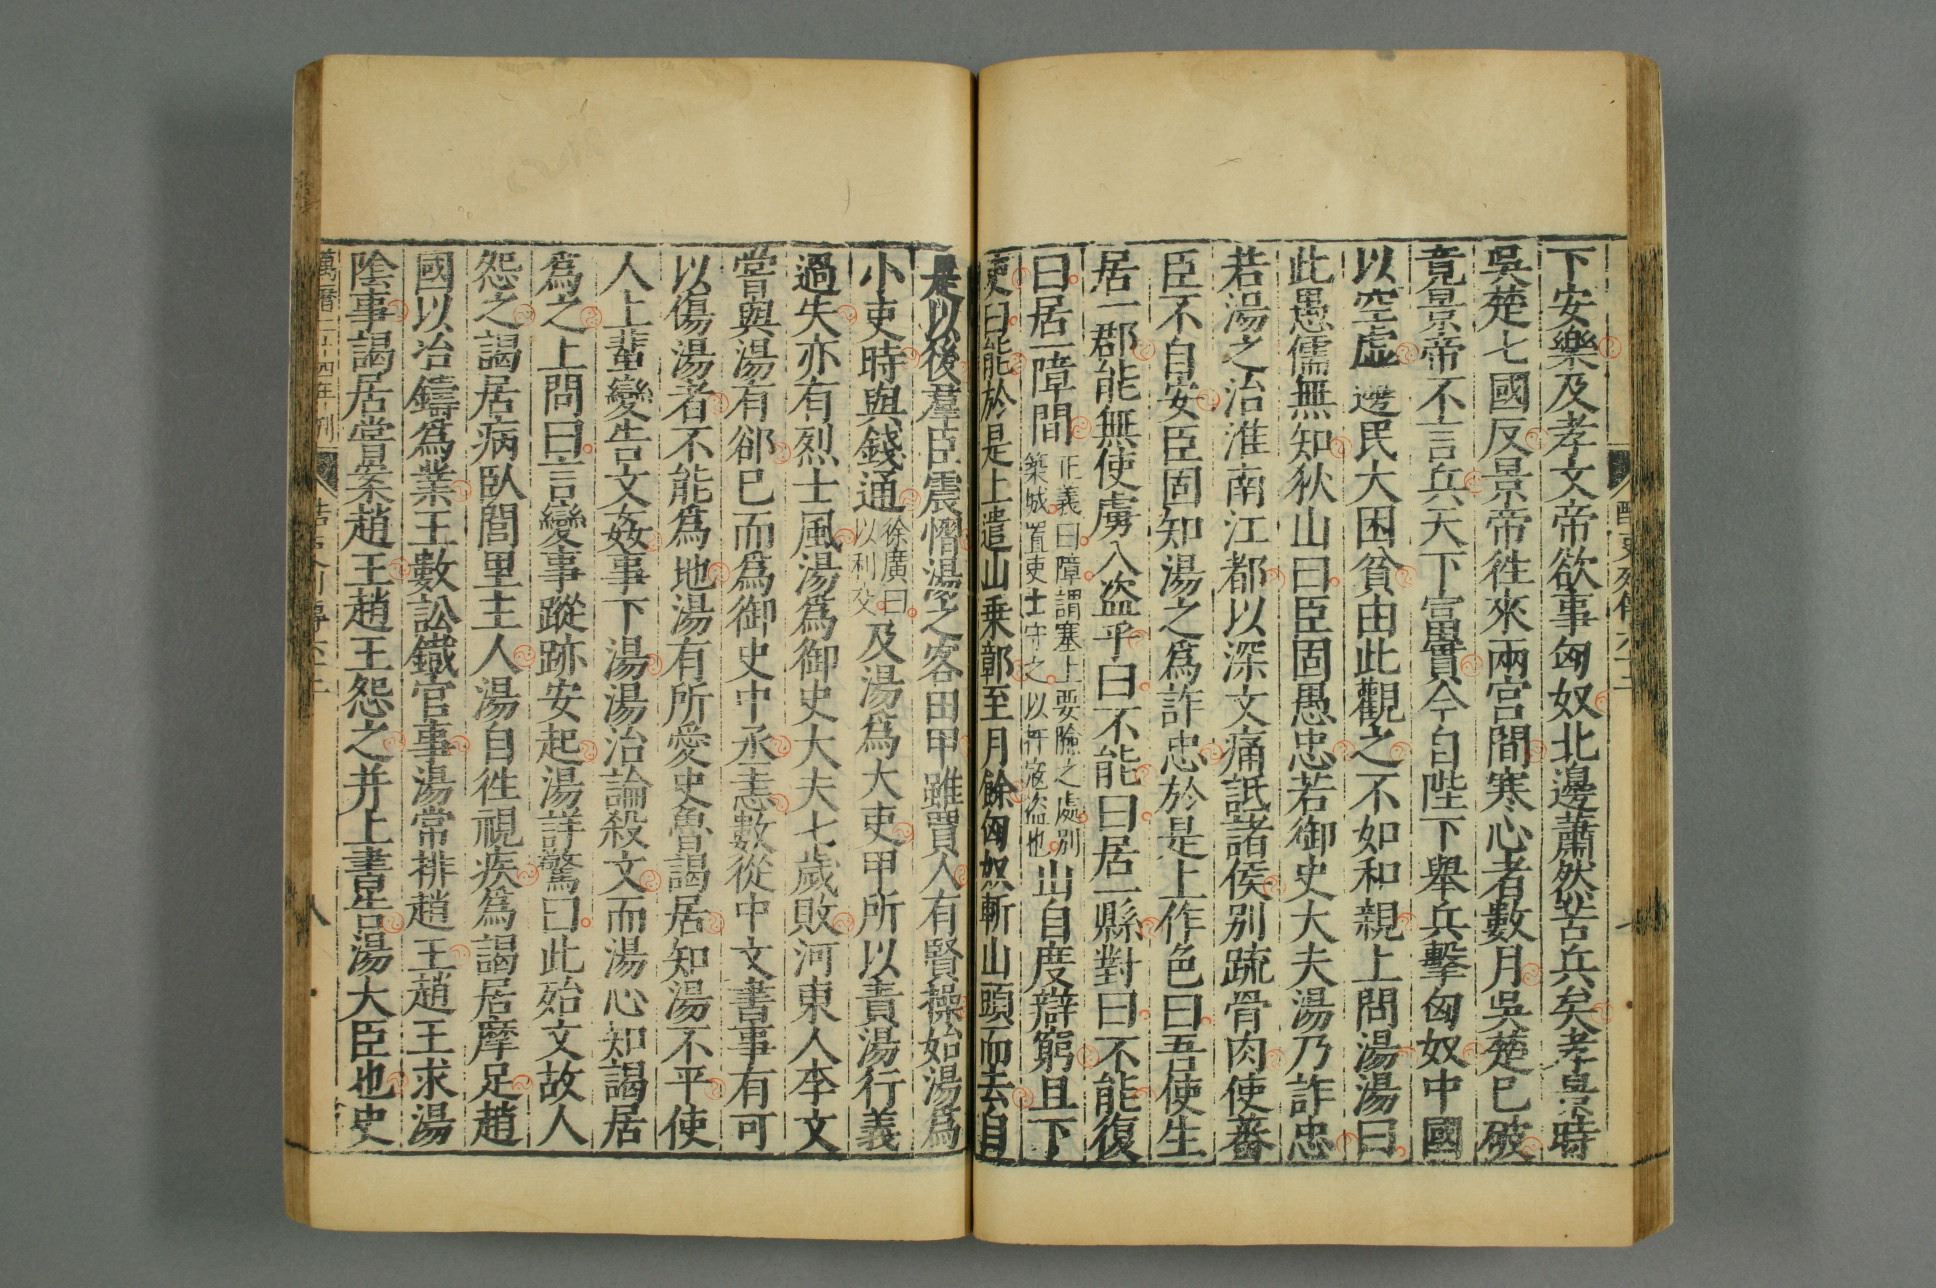 下安樂及孝文帝欲事匈奴北邊蕭然苦兵矣孝景時
吳楚七國反景帝徃來兩宮間寒心者數月吳楚已破
竟景帝不言兵天下富實今自陛下舉兵擊匈奴中國
以空虛邊民大困貧由此觀之不如和親上問湯湯曰
此愚儒無知狄山曰臣固愚忠若御史大夫湯乃詐忠
若湯之治淮南江都以深文痛詆諸侯別疏骨肉使蕃
臣不自安臣固知湯之爲詐忠於是上作色曰吾使生
居一郡能無使虜入盜乎曰不能曰居一縣對曰不能復
曰居一障間正義曰障謂塞上要險之處別築城置吏士守之以扞寇盜也山自度辯窮且下
吏曰能於是上遣山乗鄣至月餘匈奴斬山頭而去自
是以後羣臣震慴湯之客田甲雖賈人有賢操始湯爲
小吏時與錢通徐廣曰以利交及湯爲大吏甲所以責湯行義
過失亦有烈士風湯爲御史大夫七歲敗河東人李文
嘗與湯有郤已而爲御史中丞恚數從中文書事有可
以傷湯者不能爲地湯有所愛史魯謁居知湯不平使
人上蜚變告文姦事事下湯湯治論殺文而湯心知謁居
爲之上問曰言變事蹤跡安起湯詳驚曰此殆文故人
怨之謁居病臥閭里主人湯自徃視疾爲謁居摩足趙
國以冶鑄爲業王數訟鐵官事湯常排趙王趙王求湯
陰事謁居嘗案趙王趙王怨之并上書告湯大臣也史